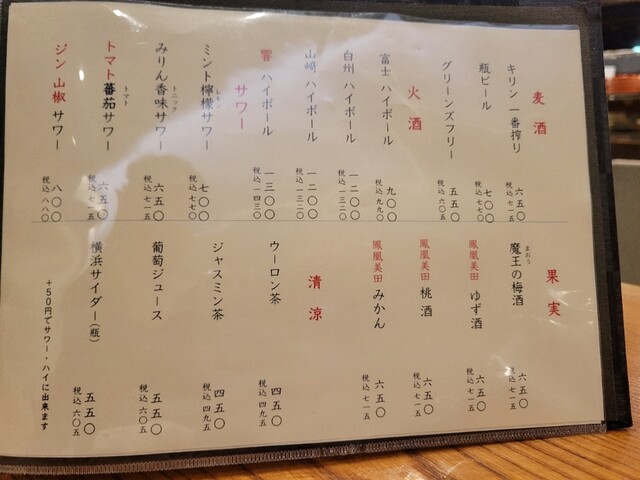 麦酒
キリン 一番搾り 六五〇 税込 七一五
瓶ビール 七〇〇 税込 七七〇
グリーンズフリー 五五〇 税込 六〇五
火酒
富士 ハイボール 九〇〇 税込 九九〇
白州 ハイボール 一二〇〇 税込 一三二〇
山崎 ハイボール 一二〇〇 税込 一三二〇
響 ハイボール 一三〇〇 税込 一四三〇
サワー
ミント檸檬サワー レモン 七〇〇 税込 七七〇
みりん香味サワー トニック 六五〇 税込 七一五
トマト蕃茄サワー トマト 六五〇 税込 七一五
ジン 山椒 サワー 八〇〇 税込 八八〇
果実
魔王の梅酒 まおう 六五〇 税込 七一五
鳳凰美田 ゆず酒 六五〇 税込 七一五
鳳凰美田 桃酒 六五〇 税込 七一五
鳳凰美田 みかん 六五〇 税込 七一五
清涼
ウーロン茶 四五〇 税込 四九五
ジャスミン茶 四五〇 税込 四九五
葡萄ジュース 五五〇 税込 六〇五
横浜サイダー(瓶) 五五〇 税込 六〇五
+50円でサワー・ハイに出来ます